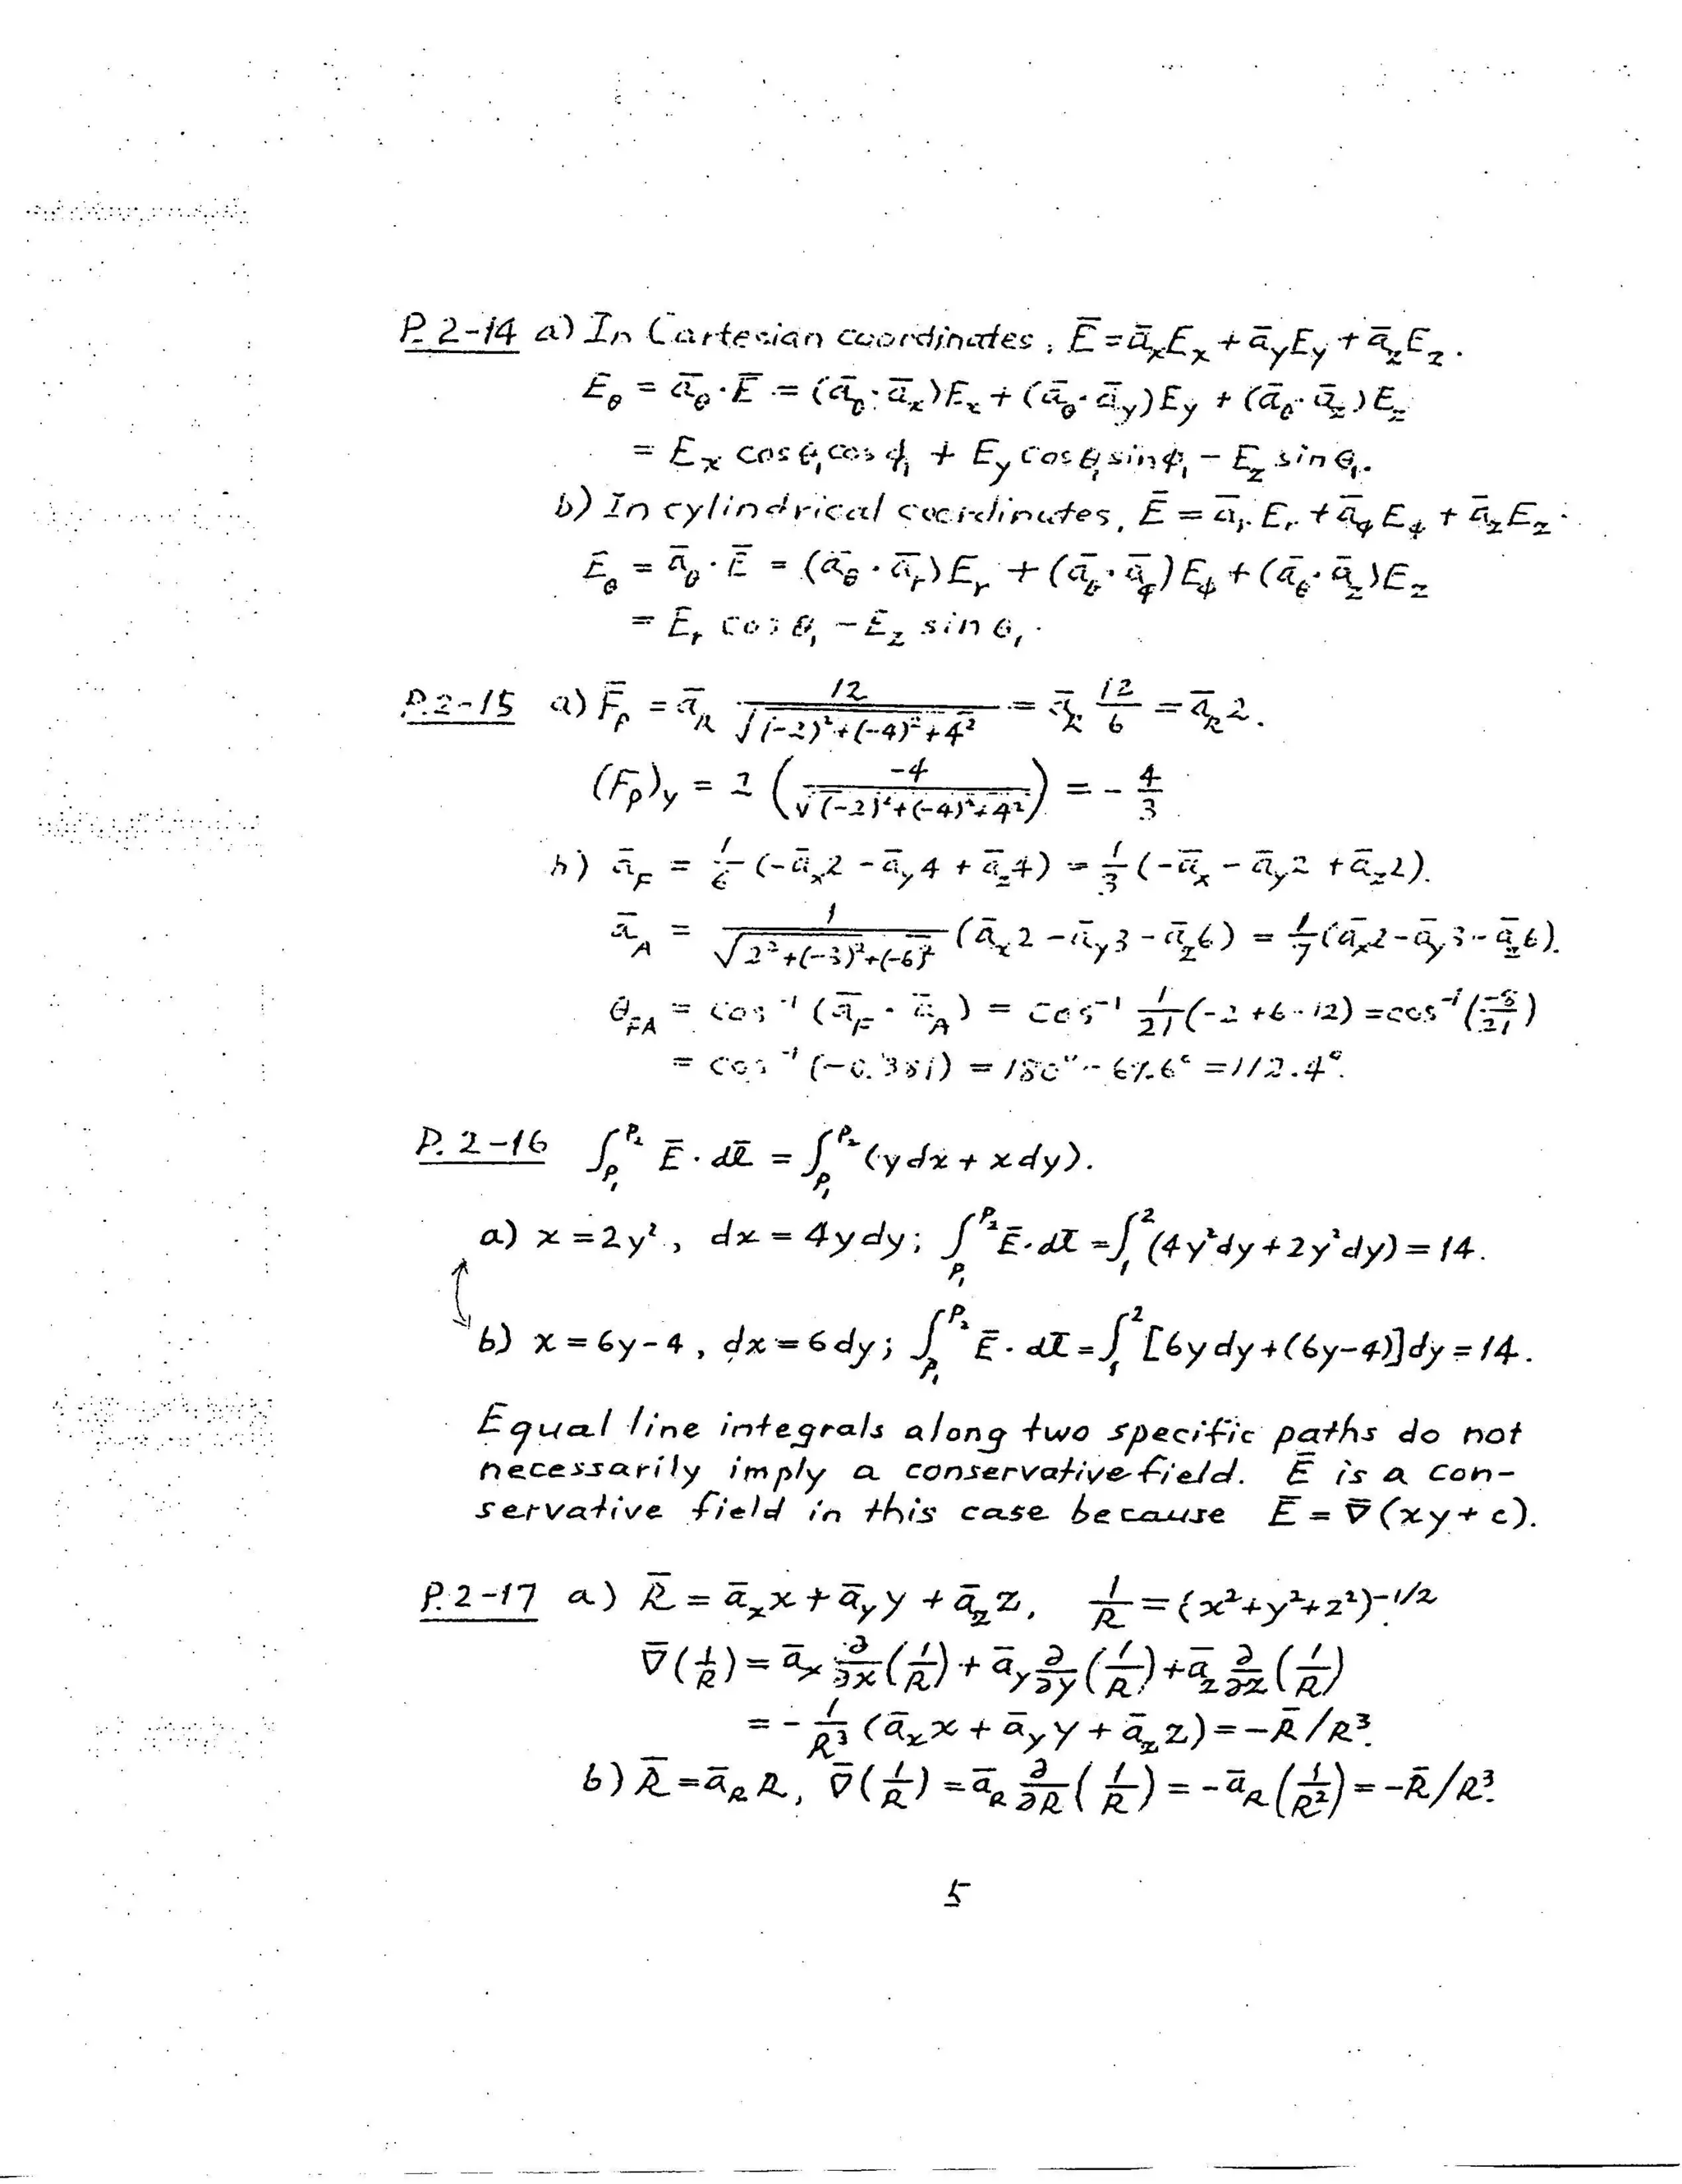 P. 2-14 a) In Cartesian coordinates, Ē = ā_x E_x + ā_y E_y + ā_z E_z.
E_θ = ā_θ · Ē = (ā_θ · ā_x)E_x + (ā_θ · ā_y)E_y + (ā_θ · ā_z)E_z
= E_x cos θ₁ cos φ₁ + E_y cos θ₁ sin φ₁ − E_z sin θ₁.
b) In cylindrical coordinates, Ē = ā_r E_r + ā_φ E_φ + ā_z E_z.
E_θ = ā_θ · Ē = (ā_θ · ā_r)E_r + (ā_θ · ā_φ)E_φ + (ā_θ · ā_z)E_z
= E_r cos θ₁ − E_z sin θ₁.
P. 2-15 a) F̄_P = ā_R 12/√((-2)²+(-4)²+4²) = ā_R 12/6 = ā_R 2.
(F_P)_y = 2 (-4/√((-2)²+(-4)²+4²)) = − 4/3
b) ā_F = 1/6 (−ā_x 2 − ā_y 4 + ā_z 4) = 1/3 (−ā_x − ā_y 2 + ā_z 2).
ā_A = 1/√(2²+(-3)²+(-6)²) (ā_x 2 − ā_y 3 − ā_z 6) = 1/7 (ā_x 2 − ā_y 3 − ā_z 6).
θ_FA = cos⁻¹ (ā_F · ā_A) = cos⁻¹ 1/21 (−2 + 6 − 12) = cos⁻¹ (−8/21)
= cos⁻¹ (−0.381) = 180° − 67.6° = 112.4°.
P. 2-16 ∫_P₁^P₂ Ē · dl̄ = ∫_P₁^P₂ (y dx + x dy).
a) x = 2y², dx = 4y dy; ∫_P₁^P₂ Ē · dl̄ = ∫₁² (4y² dy + 2y² dy) = 14.
b) x = 6y − 4, dx = 6 dy; ∫_P₁^P₂ Ē · dl̄ = ∫₁² [6y dy + (6y − 4)] dy = 14.
Equal line integrals along two specific paths do not
necessarily imply a conservative field. Ē is a con-
servative field in this case because Ē = ∇̄ (xy + c).
P. 2-17 a) R̄ = ā_x x + ā_y y + ā_z z, 1/R = (x² + y² + z²)^-1/2.
∇̄(1/R) = ā_x ∂/∂x (1/R) + ā_y ∂/∂y (1/R) + ā_z ∂/∂z (1/R)
= − 1/R³ (ā_x x + ā_y y + ā_z z) = −R̄/R³.
b) R̄ = ā_R R, ∇̄(1/R) = ā_R ∂/∂R (1/R) = −ā_R (1/R²) = −R̄/R³.
5